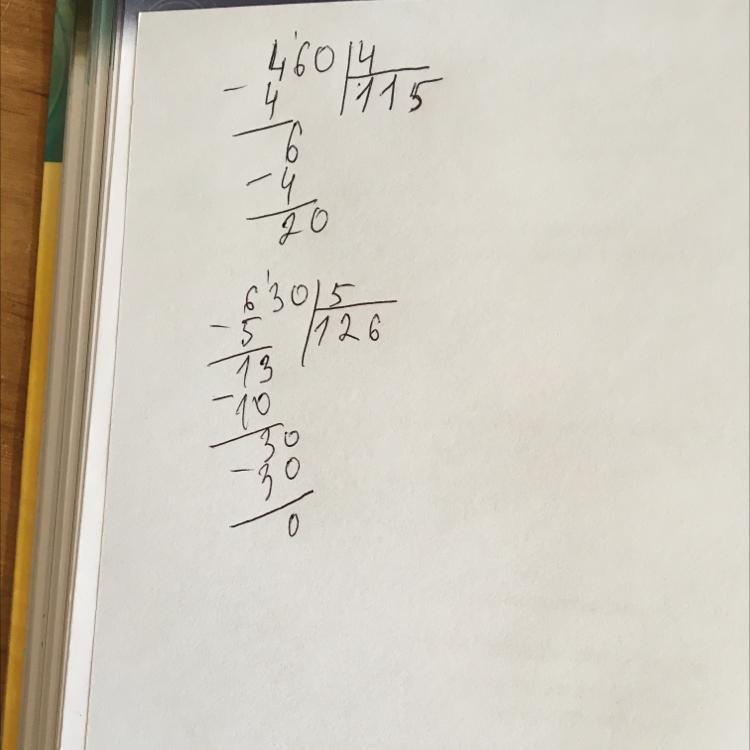 460 4
- 4 115
6
- 4
20
630 5
- 5 126
13
- 10
30
- 30
0